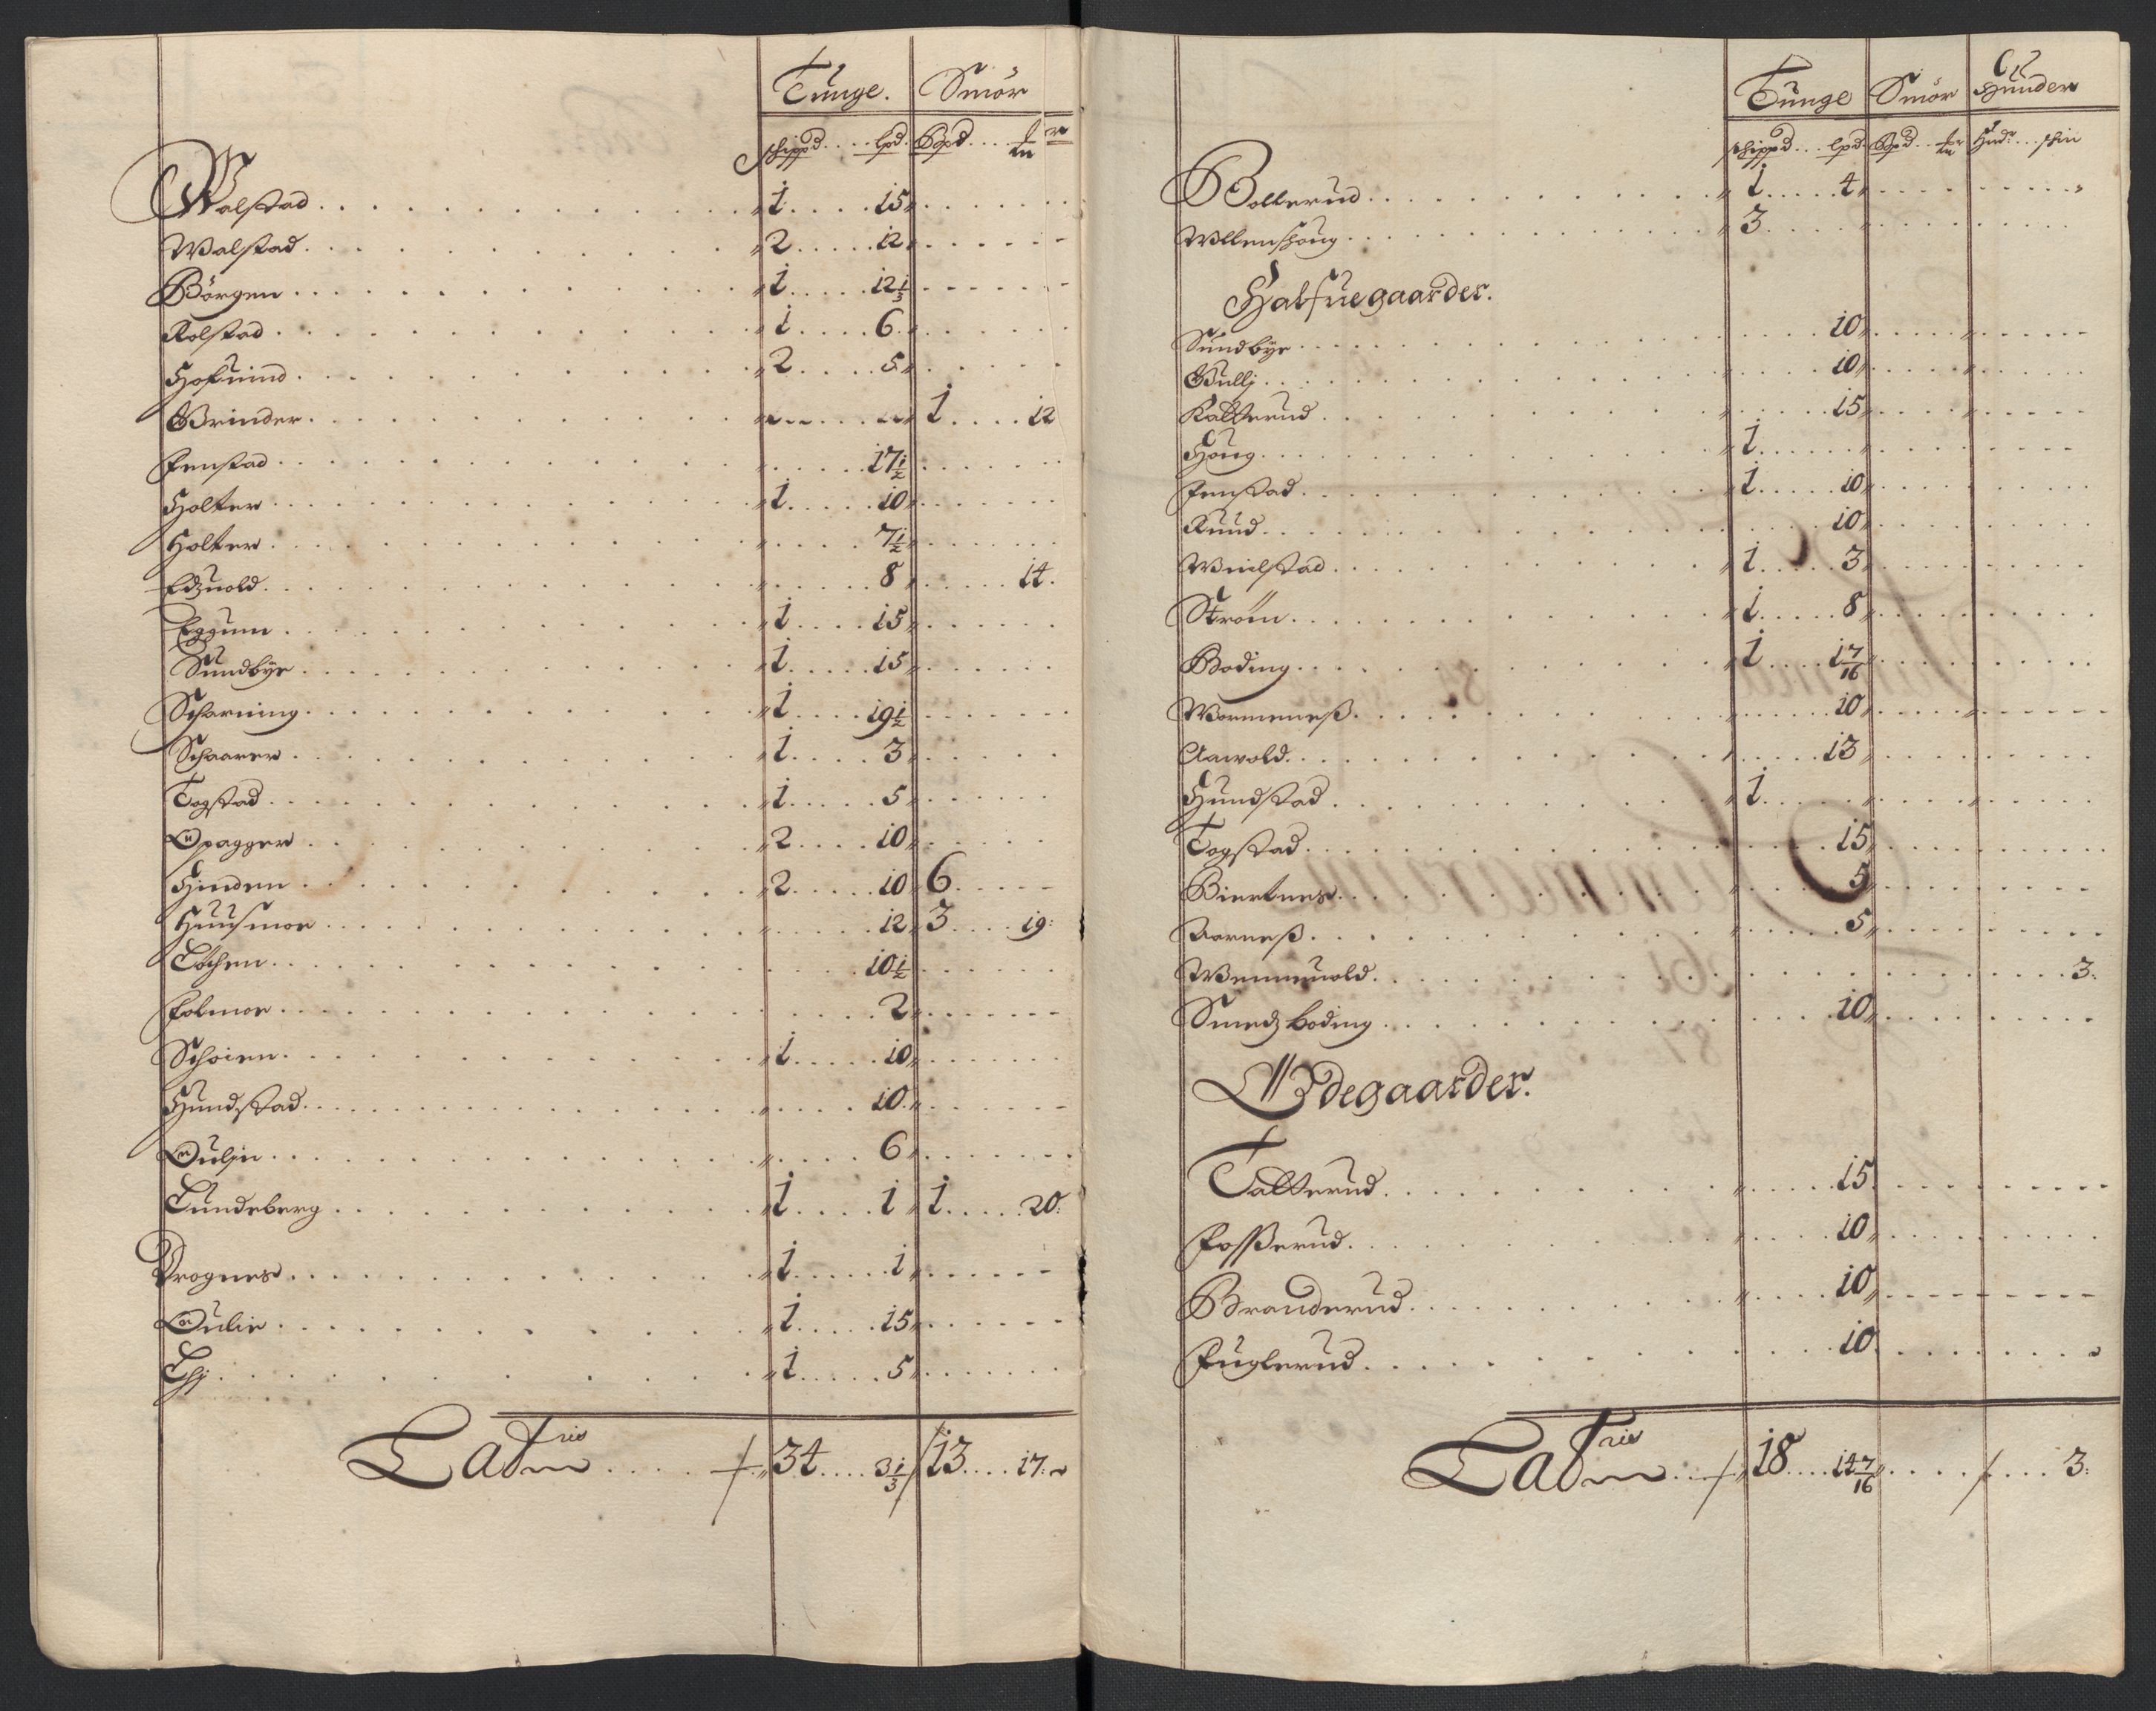 Tunge. Smör
Schippd .... lpd. Bpd .... mr
Walstad 1 .... 15
Walstad 2 .... 12
Börgen 1 .... 12 1/3
Rolstad 1 .... 6
Hofuind 2 .... 5
Grinder 1 .... 12
Fenstad 17 1/2
Holter 1 .... 10
Holter 7 1/2
Edzuold 8 14.
Eggum 1 .... 15
Sundbye 1 .... 15
Scharning 1 .... 19 1/2
Schaarer 1 .... 3
Togstad 1 .... 5
Opagger 2 .... 10
Hinden 2 .... 10 6
Huusmoe 12 3 .... 19:
Löchen 10 1/2
Folmoe 2
Schoien 1 .... 10
Hundstad 10
Ouljn 6
Lundeberg 1 .... 1 1 .... 20:
Frognes 1 .... 1
Oulie 1 .... 15
Lhj 1 .... 5
Latris .... 34 .... 3 1/3 13 .... 17:
Tunge Smör Hunder
Schippd ... lpd. Bpd ... mr Hudr ... Skin
Bollerud 1 .... 4
Wllenshoug 3
Halfuegaarder.
Sundbye 10
Gullj 10
Katterud 15
Houg 1
Fenstad 1 .... 10
Ruud 10
Wiulstad 1 .... 3
Ström 1 .... 8
Boding 1 .... 1 7/16
Wormeneß 10
Aawold 13
Hundstad 1
Togstad 15
Biertnes 5
Aarneß 5
Wemmuold 3:
Smedz boding 10
Ødegaarder.
Tatterud 15
Fosserud 10
Branderud 10
Fuglerud 10
Latris .... 18 .... 14 7/16 .... 3: